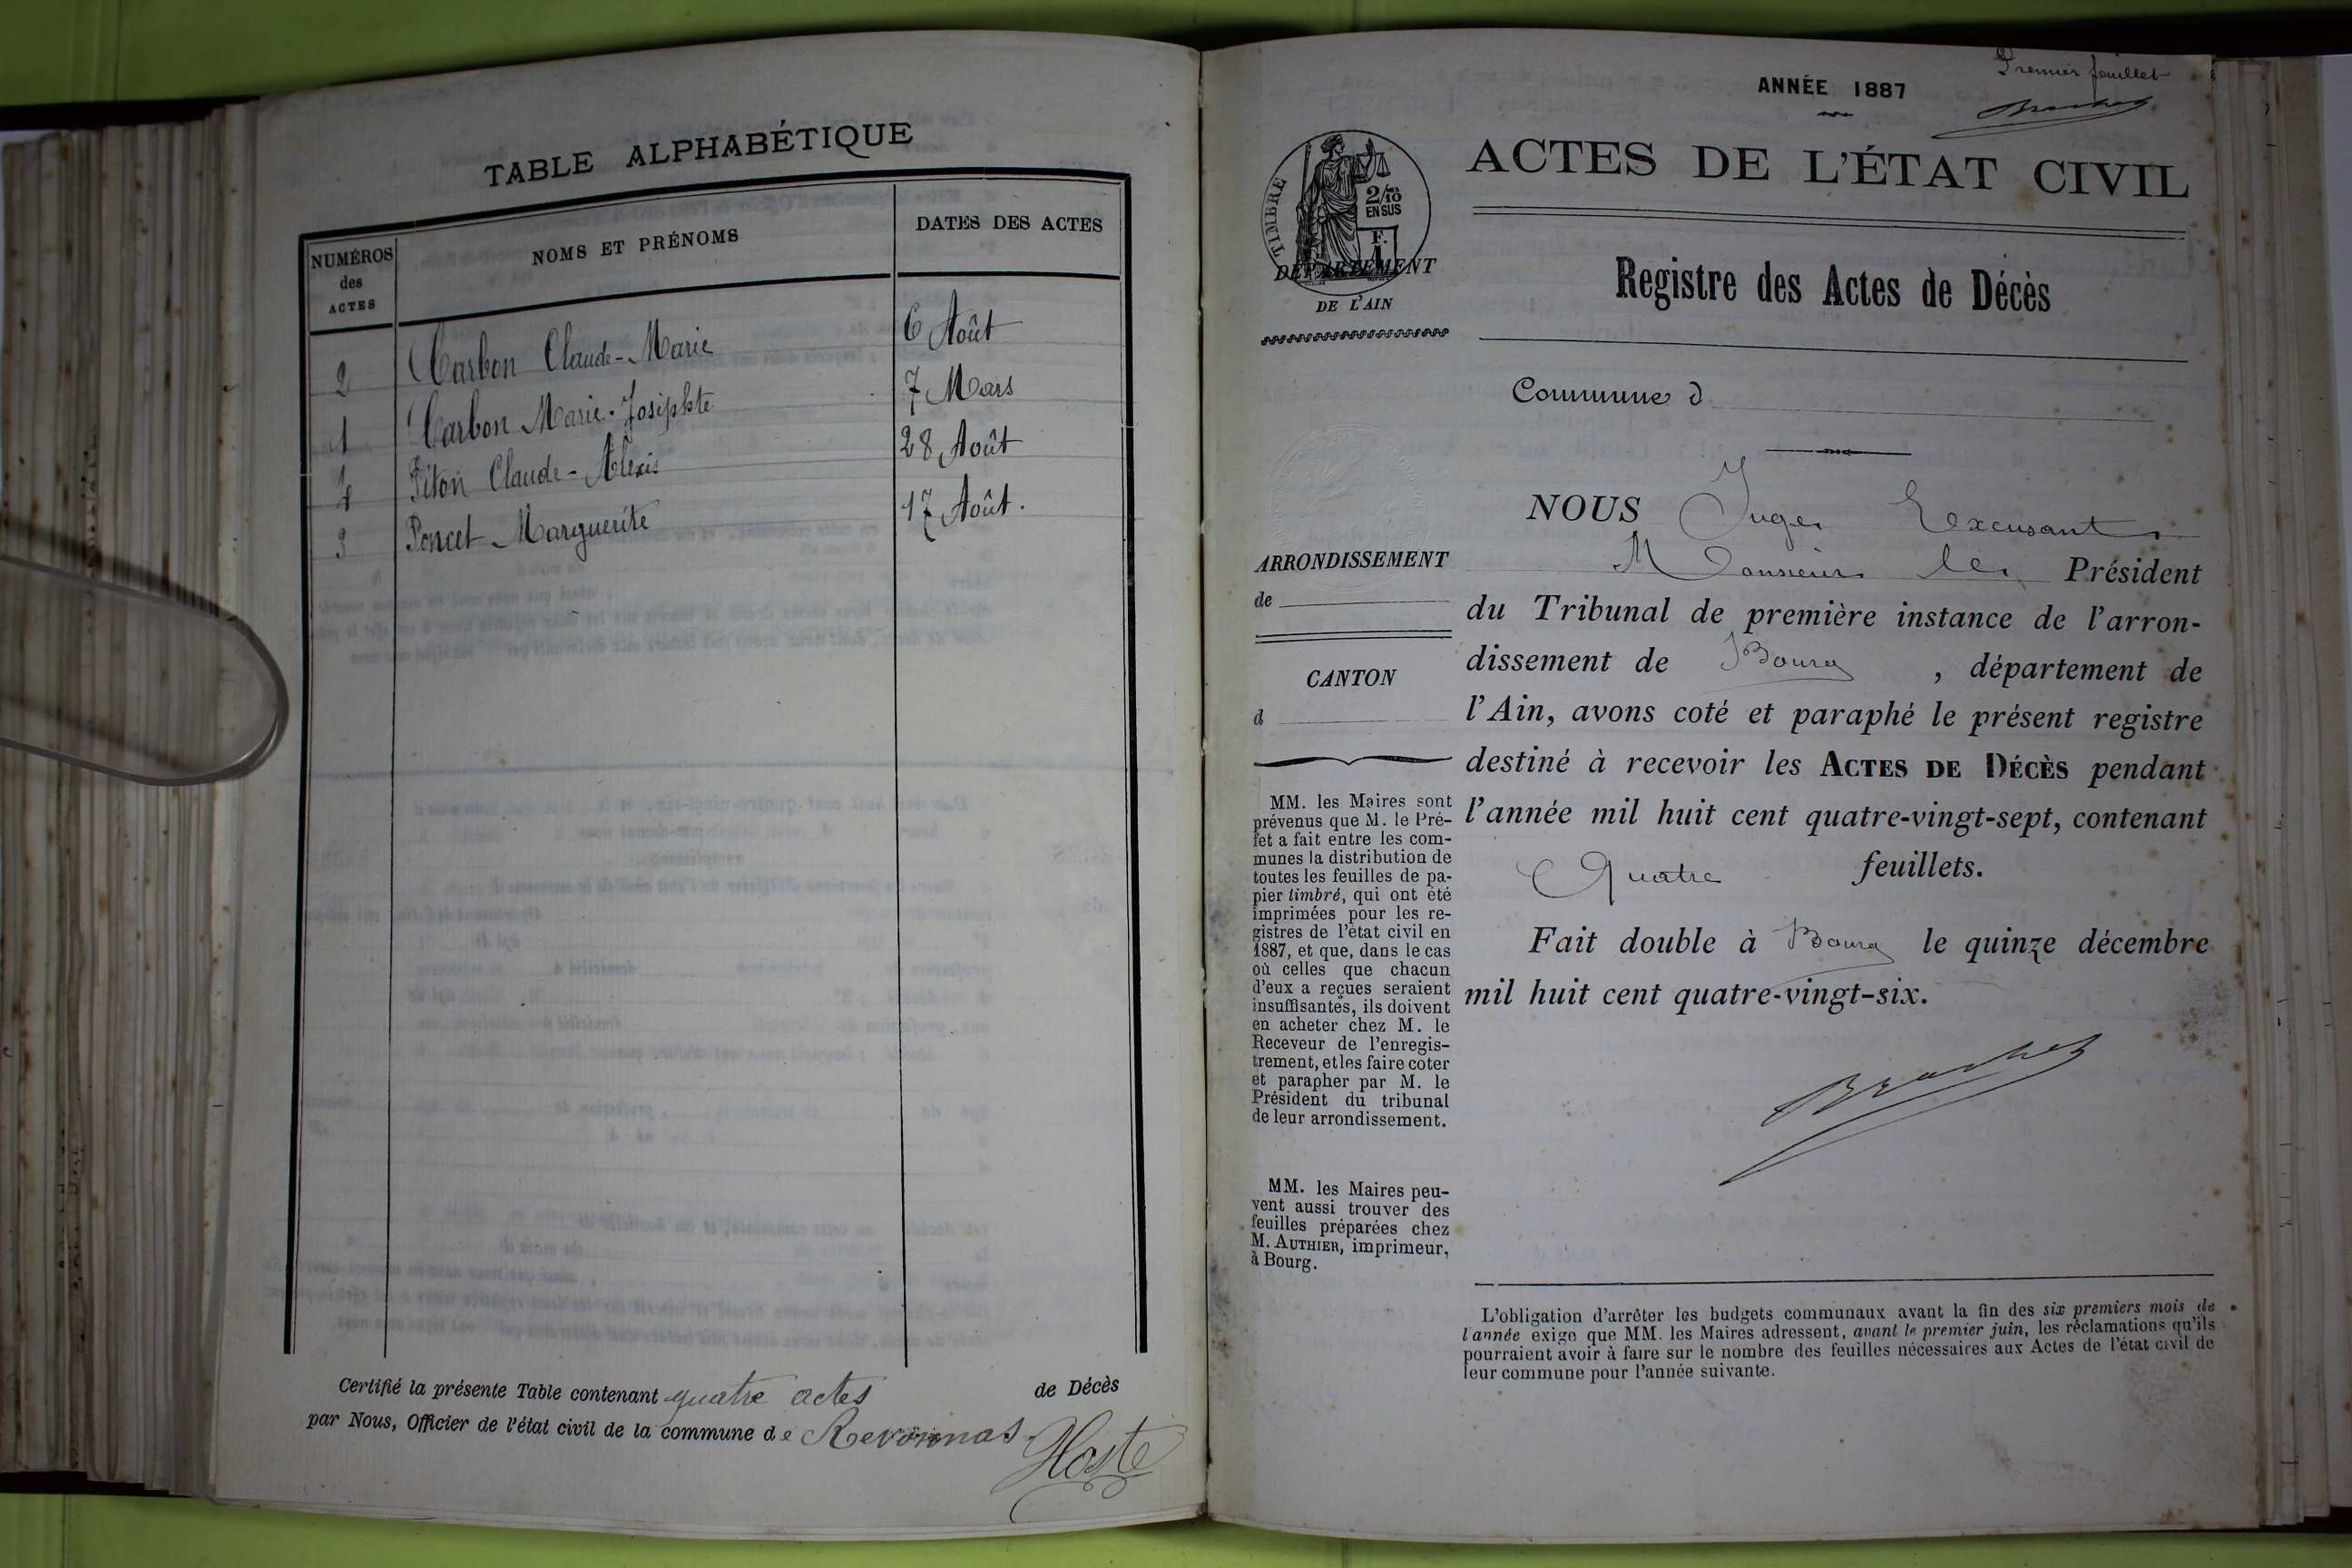 TABLE ALPHABÉTIQUE
NUMÉROS des ACTES
NOMS ET PRÉNOMS
DATES DES ACTES
2 Carbon Claude-Marie 6 Août
1 Carbon Marie-Josephte 7 Mars
4 Piton Claude-Alexis 28 Août
3 Poncet Marguerite 17 Août.
Certifié la présente Table contenant quatre actes de Décès
par Nous, Officier de l'état civil de la commune de Revonnas.
Hoste
Premier feuillet
ANNÉE 1887
ACTES DE L'ÉTAT CIVIL
TIMBRE
2/10
EN SUS
F.
1
DÉPARTEMENT
DE L'AIN
Registre des Actes de Décès
Commune d
NOUS Juge Excusant
Monsieur le Président
du Tribunal de première instance de l'arron-
dissement de Bourg, département de
l'Ain, avons coté et paraphé le présent registre
destiné à recevoir les ACTES DE DÉCÈS pendant
l'année mil huit cent quatre-vingt-sept, contenant
Quatre feuillets.
Fait double à Bourg le quinze décembre
mil huit cent quatre-vingt-six.
ARRONDISSEMENT
de
CANTON
d
MM. les Maires sont
prévenus que M. le Pré-
fet a fait entre les com-
munes la distribution de
toutes les feuilles de pa-
pier timbré, qui ont été
imprimées pour les re-
gistres de l'état civil en
1887, et que, dans le cas
où celles que chacun
d'eux a reçues seraient
insuffisantes, ils doivent
en acheter chez M. le
Receveur de l'enregis-
trement, et les faire coter
et parapher par M. le
Président du tribunal
de leur arrondissement.
MM. les Maires peu-
vent aussi trouver des
feuilles préparées chez
M. AUTHIER, imprimeur,
à Bourg.
L'obligation d'arrêter les budgets communaux avant la fin des six premiers mois de
l'année exige que MM. les Maires adressent, avant le premier juin, les réclamations qu'ils
pourraient avoir à faire sur le nombre des feuilles nécessaires aux Actes de l'état civil de
leur commune pour l'année suivante.